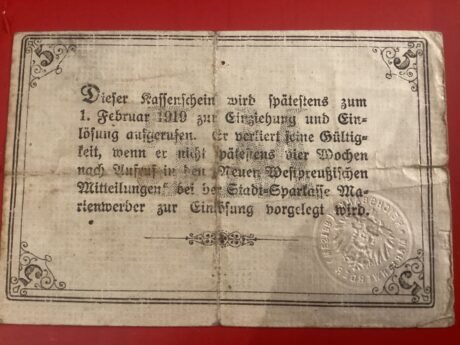 5 5
Dieser Kassenschein wird spätestens zum
1. Februar 1919 zur Einziehung und Ein-
lösung aufgerufen. Er verliert seine Gültig-
keit, wenn er nicht spätestens vier Wochen
nach Aufruf in den „Neuen Westpreußischen
Mitteilungen“ bei der Stadt-Sparkasse Ma-
rienwerder zur Einlösung vorgelegt wird.
5 5